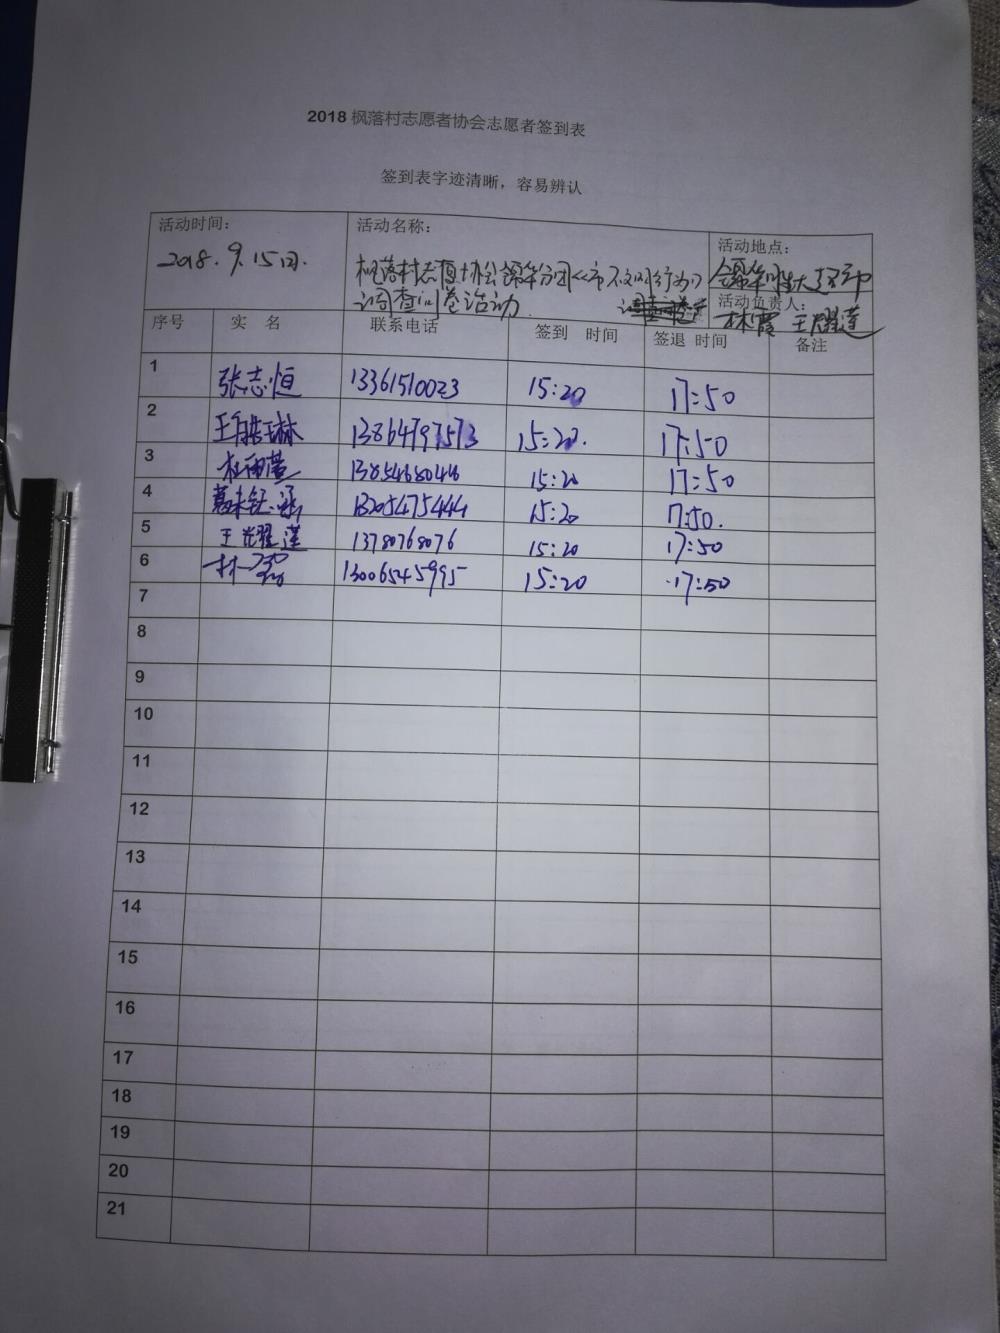 2018 枫落村志愿者协会志愿者签到表
签到表字迹清晰，容易辨认
活动时间： 活动名称： 活动地点：
2018.9.15日. 枫落村志愿协会锦华分团《市不文明行为》
调查问卷活动 活动负责人：
林霞 王耀莲
序号 实 名 联系电话 签到 时间 签退 时间 备注
1 张志恒 13361510023 15:20 17:50
2 13864797573 15:20. 17:50
3 13854680448 15:20 17:50
4 13205475444 15:20 17:50.
5 王耀莲 13780768076 15:20 17:50
6 林霞 13006545995 15:20 17:50
7
8
9
10
11
12
13
14
15
16
17
18
19
20
21